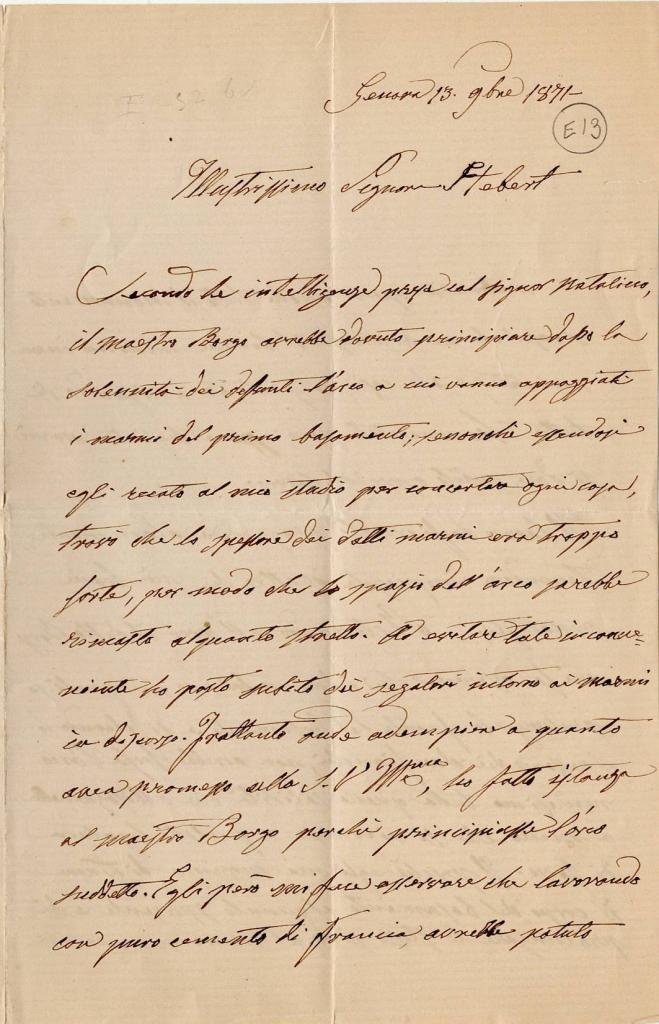 Genova 13. 9bre 1871
E13
Illustrissimo Signor Stebert
Secondo le intelligenze prese col signor Natalino,
il maestro Borgo avrebbe dovuto principiare dopo la
solennità dei defunti l'arco a cui vanno appoggiati
i marmi del primo basamento; senonchè essendosi
egli recato al mio studio per concertare ogni cosa,
trovò che lo spessore dei detti marmi era troppo
forte, per modo che lo spazio dell'arco sarebbe
rimasto alquanto stretto. Ad evitare tale inconve=
niente ho posto subito dei segatori intorno ai marmi
in discorso. Frattanto onde adempiere a quanto
avea promesso alla S. V. Illma, ho fatto istanza
al maestro Borgo perchè principiasse l'arco
suddetto. Egli però mi fece osservare che lavorando
con puro cemento di Francia avrebbe potuto